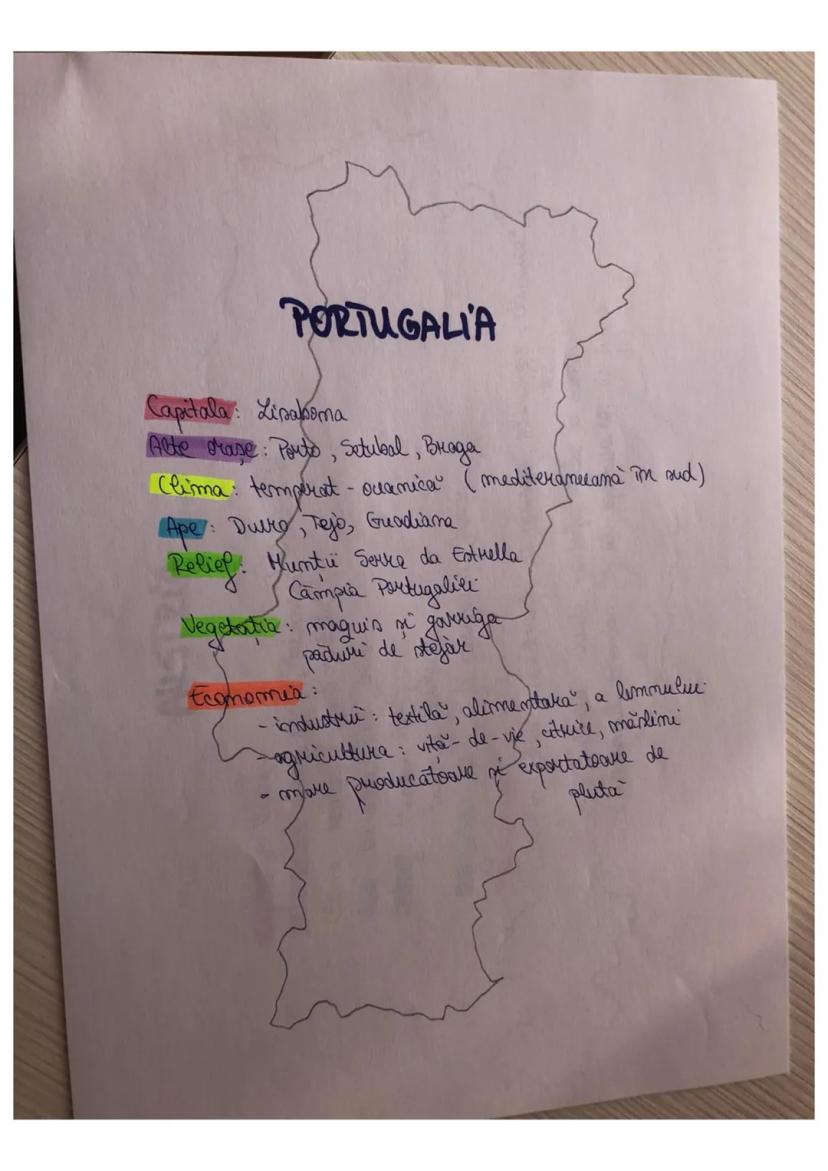 PORTUGALIA
Capitala: Lisabona
Alte orașe: Porto, Setubal, Braga
Clima: temperat - oceanică (mediteraneeană în sud)
Ape: Duro, Tejo, Guadiana
Relief: Munții Serra da Estrella
Câmpia Portugaliei
Vegetația: maquis și garriga
păduri de stejar
Economia:
- industrii: textilă, alimentară, a lemnului
- agricultura: viță-de-vie, citrice, măslini
- mare producătoare și exportatoare de
plută